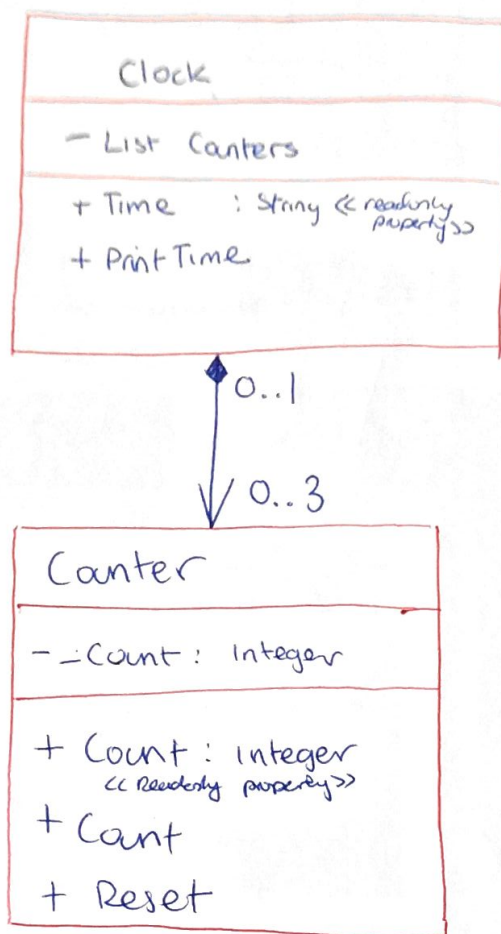 Clock
- List Counters
+ Time : String << readonly
property >>
+ PrintTime
0..1
0..3
Counter
- _Count : Integer
+ Count : Integer
<< Readonly property >>
+ Count
+ Reset